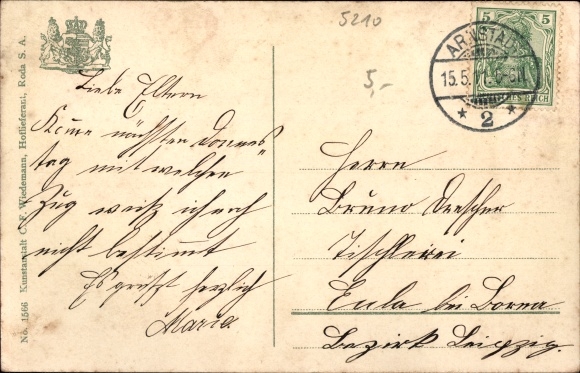 5210
5,-
No. 1566 Kunstanstalt C. F. Wiedemann, Hoflieferant, Roda S. A.
Liebe Eltern
Kome nächsten Donners"
tag mit welchen
Zug weiß ich noch
nicht bestimmt
Es grüßt herzlich
Marie.
5 5
ARNSTADT
15.5.
2
REICH
Herrn
Bruno Drescher
Tischlerei
Eula bei Borna
Bezirk Leipzig.